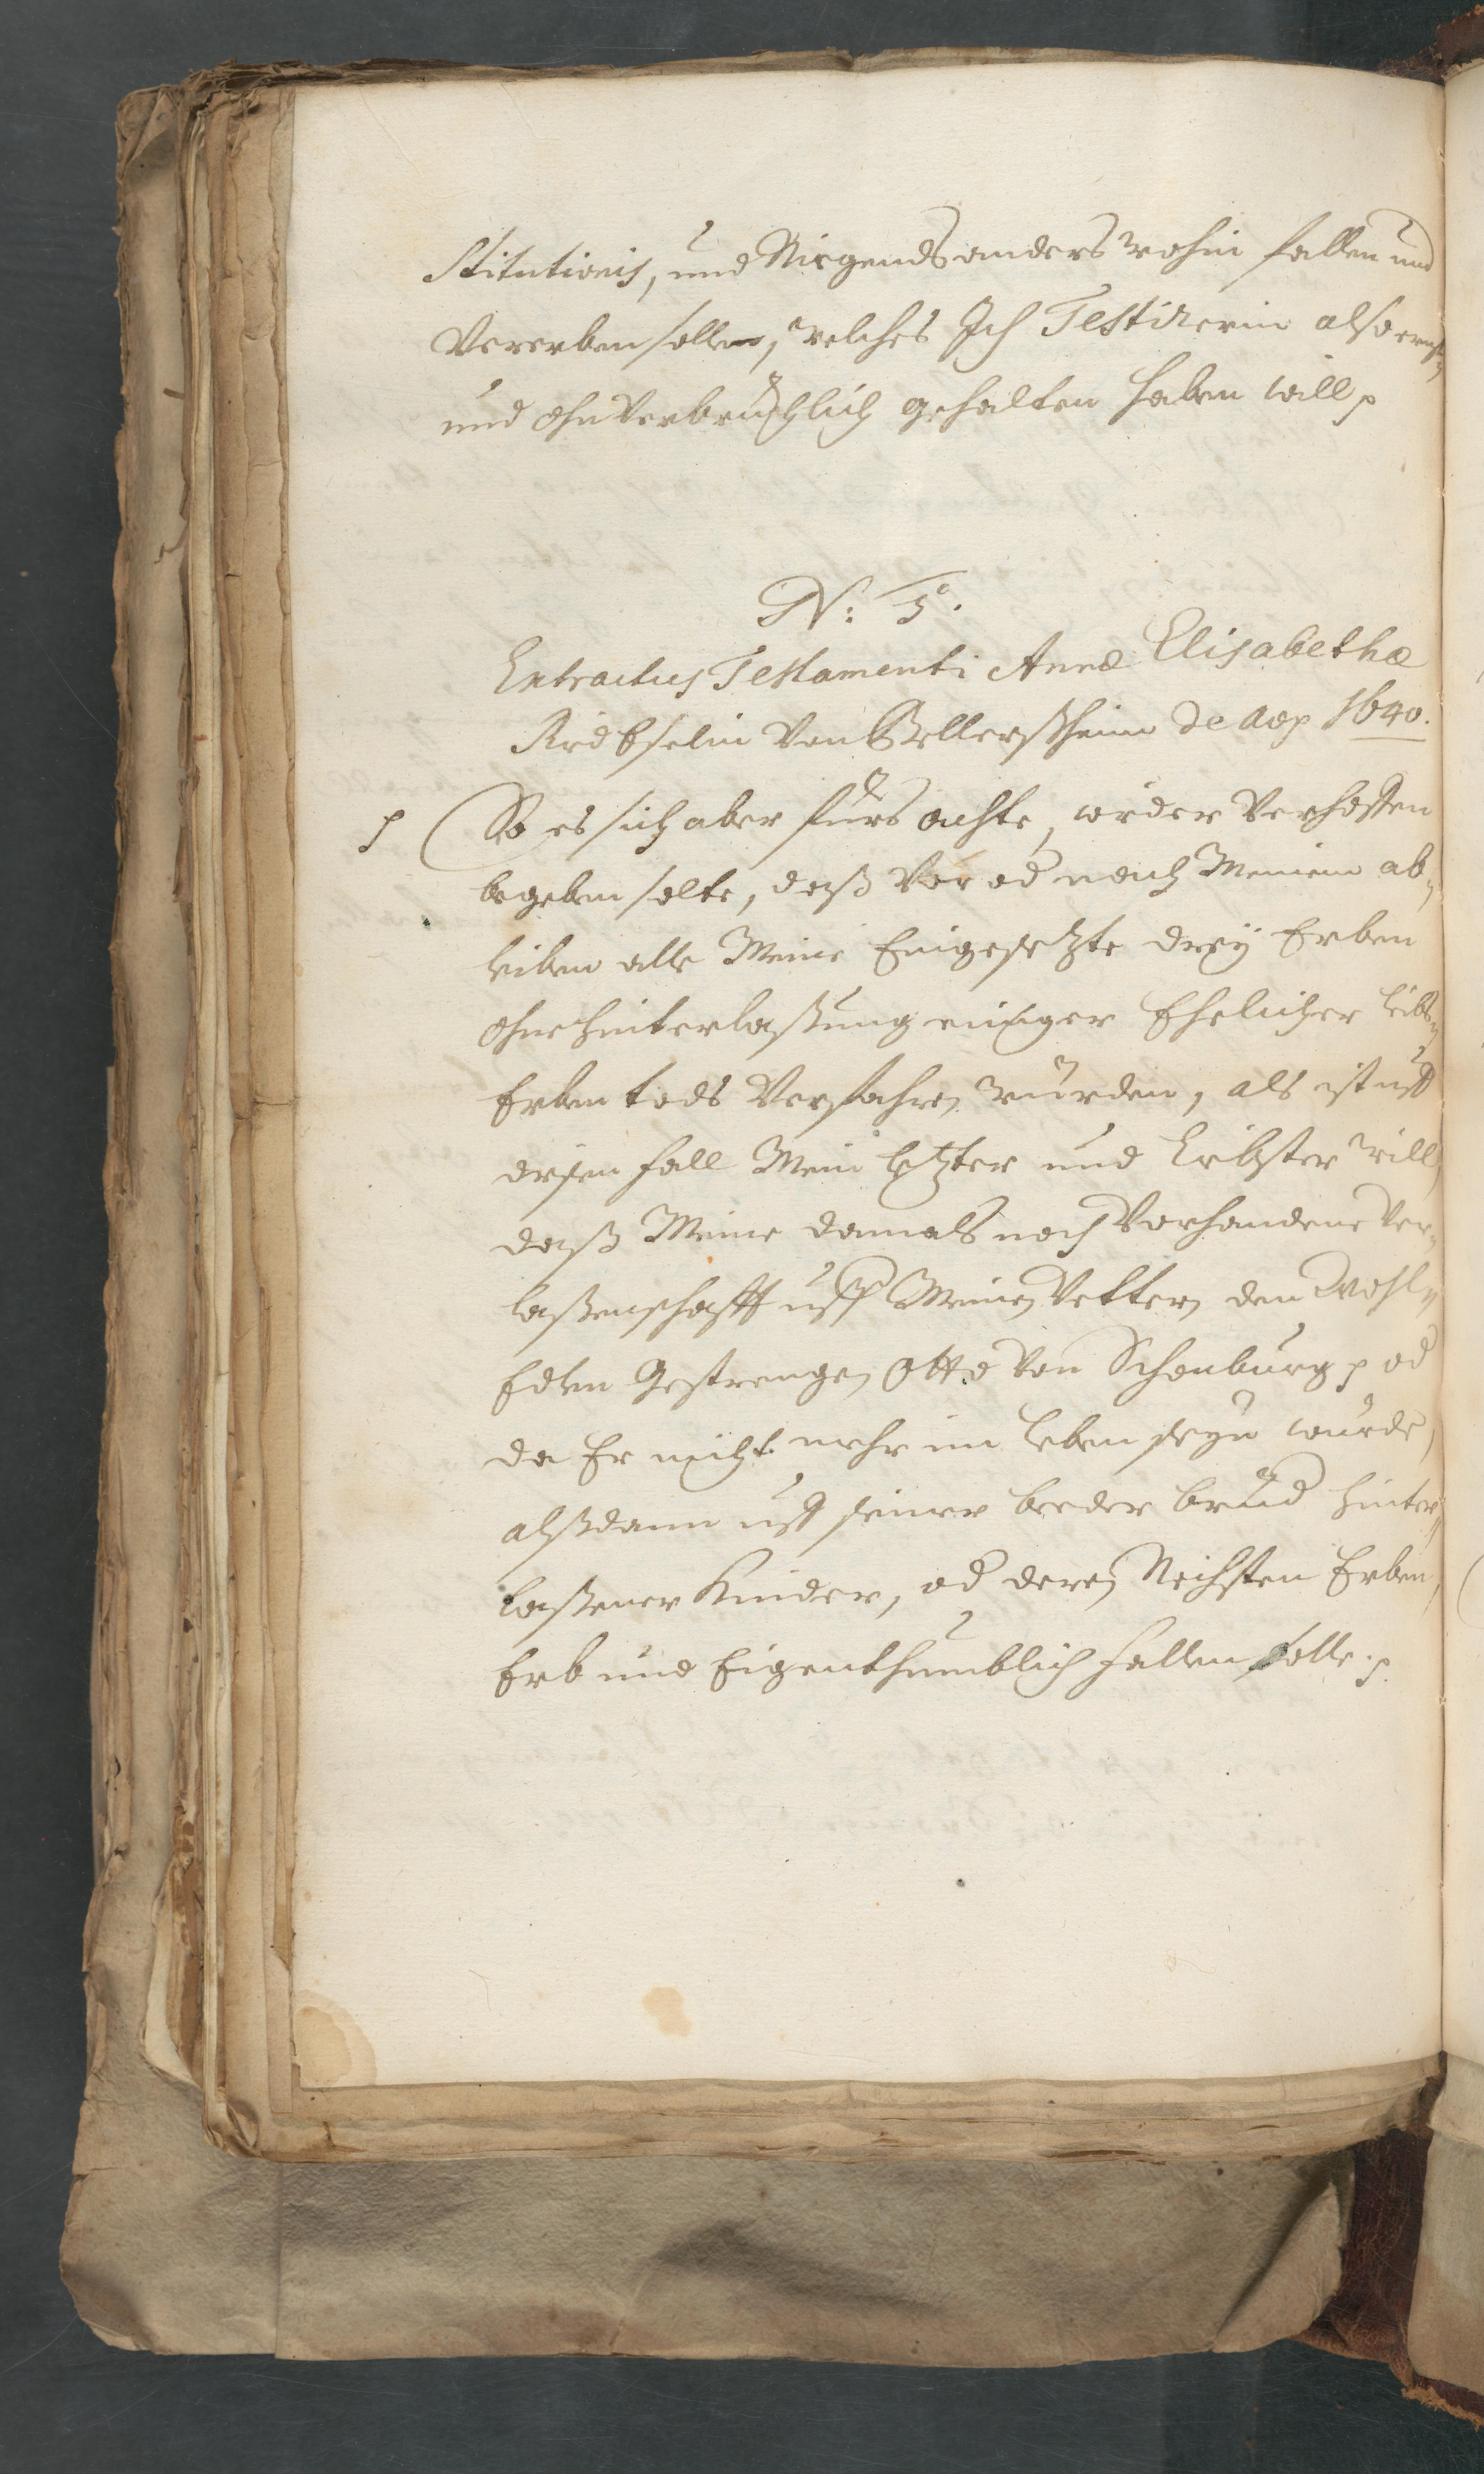 stitutionis, und Nirgends anders wohin fallen und
Vererben sollen, welches Ich Testirerin also ernst„
und ohnverbrüchlich gehalten haben will p
N: 5.
Extractus Testamenti Annæ Elisabethæ
Riedeselin Von Bellersheim de Aõ p 1640.
p So es sich aber fürs achte, wieder Verhoffen
begeben solte, daß Vor od nach Meinem ab„
leiben alle Meine Eingesetzte drey Erben
ohne hinterlaßung einiger Ehelicher leibs„
Erben tods Verfahren würden, als ist uff
diesen fall Mein letzter und liebster will,
daß Meine damals noch Vorhandene Ver„
laßenschafft uff Meinen Vettern den Wohl„
Edlen Gestrengen Otto Von Schonburg p od
da Er nicht mehr im leben seyn würde,
alßdann uff seiner beeder brüd hinter„
laßener Kinder, od deren Nechsten Erben,
Erb und Eigenthumblich fallen solle. p